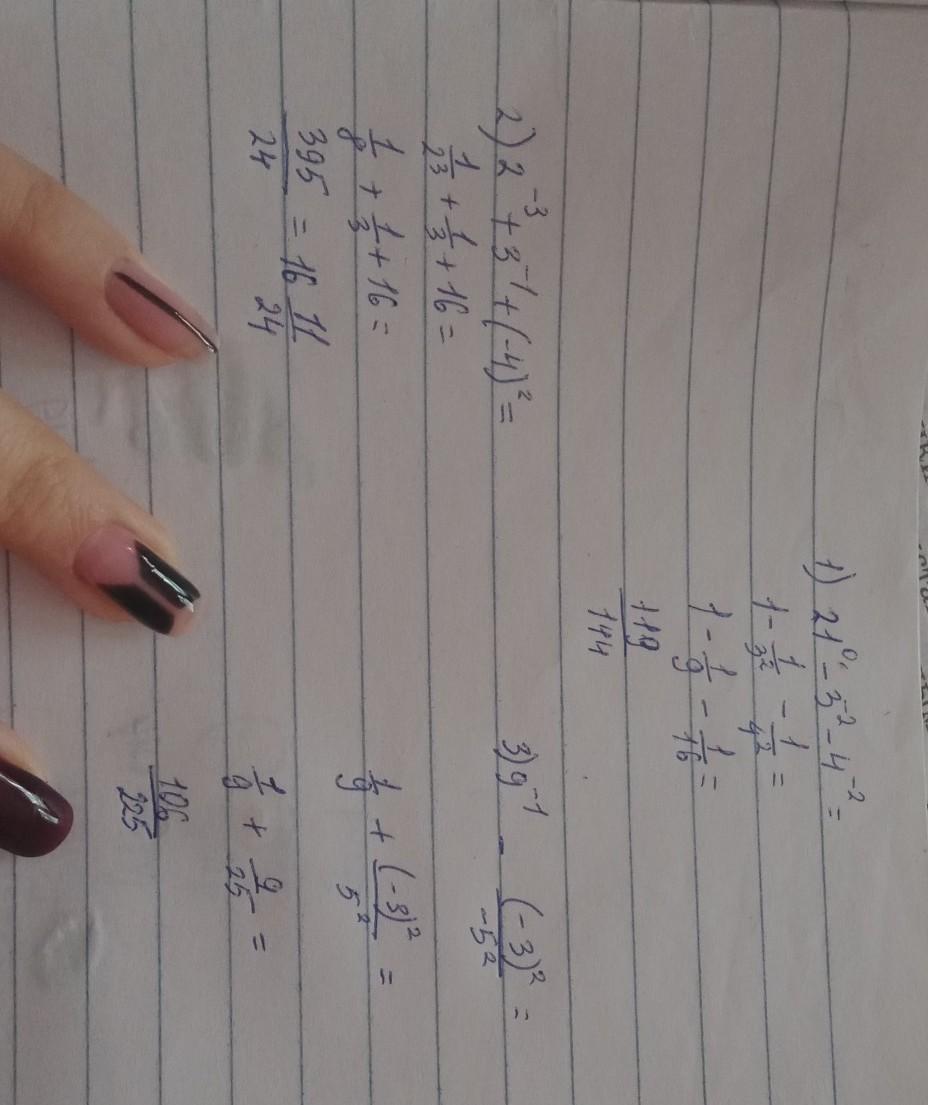 1) 21⁰ - 3⁻² - 4⁻² =
1 - 1/3² - 1/4² =
1 - 1/9 - 1/16 =
119/144
2) 2⁻³ + 3⁻¹ + (-4)² =
1/2³ + 1/3 + 16 =
1/8 + 1/3 + 16 =
395/24 = 16 11/24
3) 9⁻¹ - (-3)²/-5² =
1/9 + (-3)²/5² =
1/9 + 9/25 =
106/225